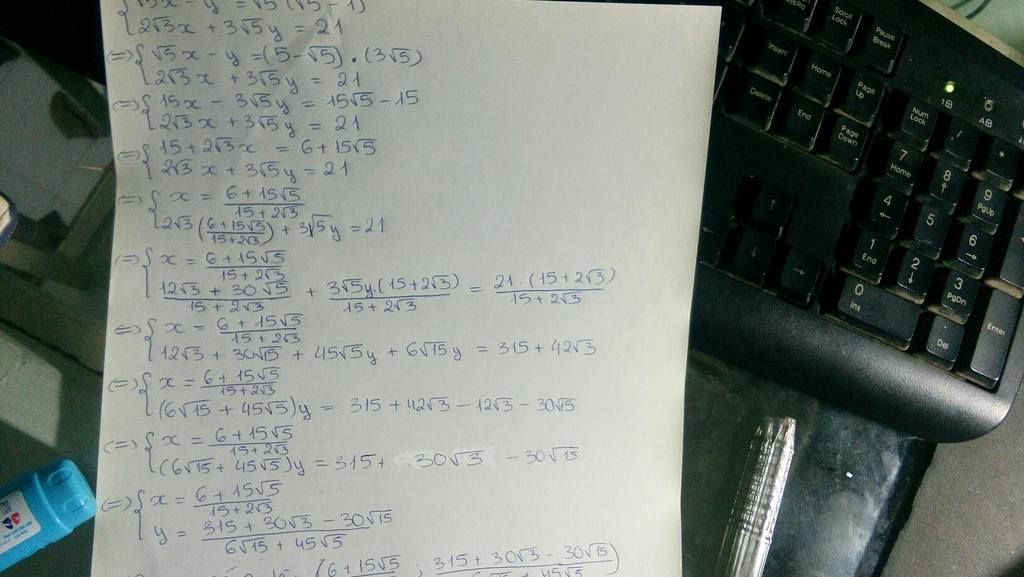 {√5x - y = √5(√5 - 1)
2√3x + 3√5y = 21
⇔ {√5x - y = (5 - √5) . (3√5)
2√3x + 3√5y = 21
⇔ {15x - 3√5y = 15√5 - 15
2√3x + 3√5y = 21
⇔ {15 + 2√3x = 6 + 15√5
2√3x + 3√5y = 21
⇔ {x = (6 + 15√5)/(15 + 2√3)
2√3((6 + 15√5)/(15 + 2√3)) + 3√5y = 21
⇔ {x = (6 + 15√5)/(15 + 2√3)
(12√3 + 30√15)/(15 + 2√3) + (3√5y.(15 + 2√3))/(15 + 2√3) = (21.(15 + 2√3))/(15 + 2√3)
⇔ {x = (6 + 15√5)/(15 + 2√3)
12√3 + 30√15 + 45√5y + 6√15y = 315 + 42√3
⇔ {x = (6 + 15√5)/(15 + 2√3)
(6√15 + 45√5)y = 315 + 42√3 - 12√3 - 30√15
⇔ {x = (6 + 15√5)/(15 + 2√3)
(6√15 + 45√5)y = 315 + 30√3 - 30√15
⇔ {x = (6 + 15√5)/(15 + 2√3)
y = (315 + 30√3 - 30√15)/(6√15 + 45√5)
Scroll Lock
Pause Break
Insert
Home
Page Up
Delete
End
Page Down
Num Lock
/
*
7 Home
8 ↑
9 PgUp
4 ←
5
6 →
1 End
2 ↓
3 PgDn
0 Ins
. Del
Enter
↑
←
↓
→
1
A